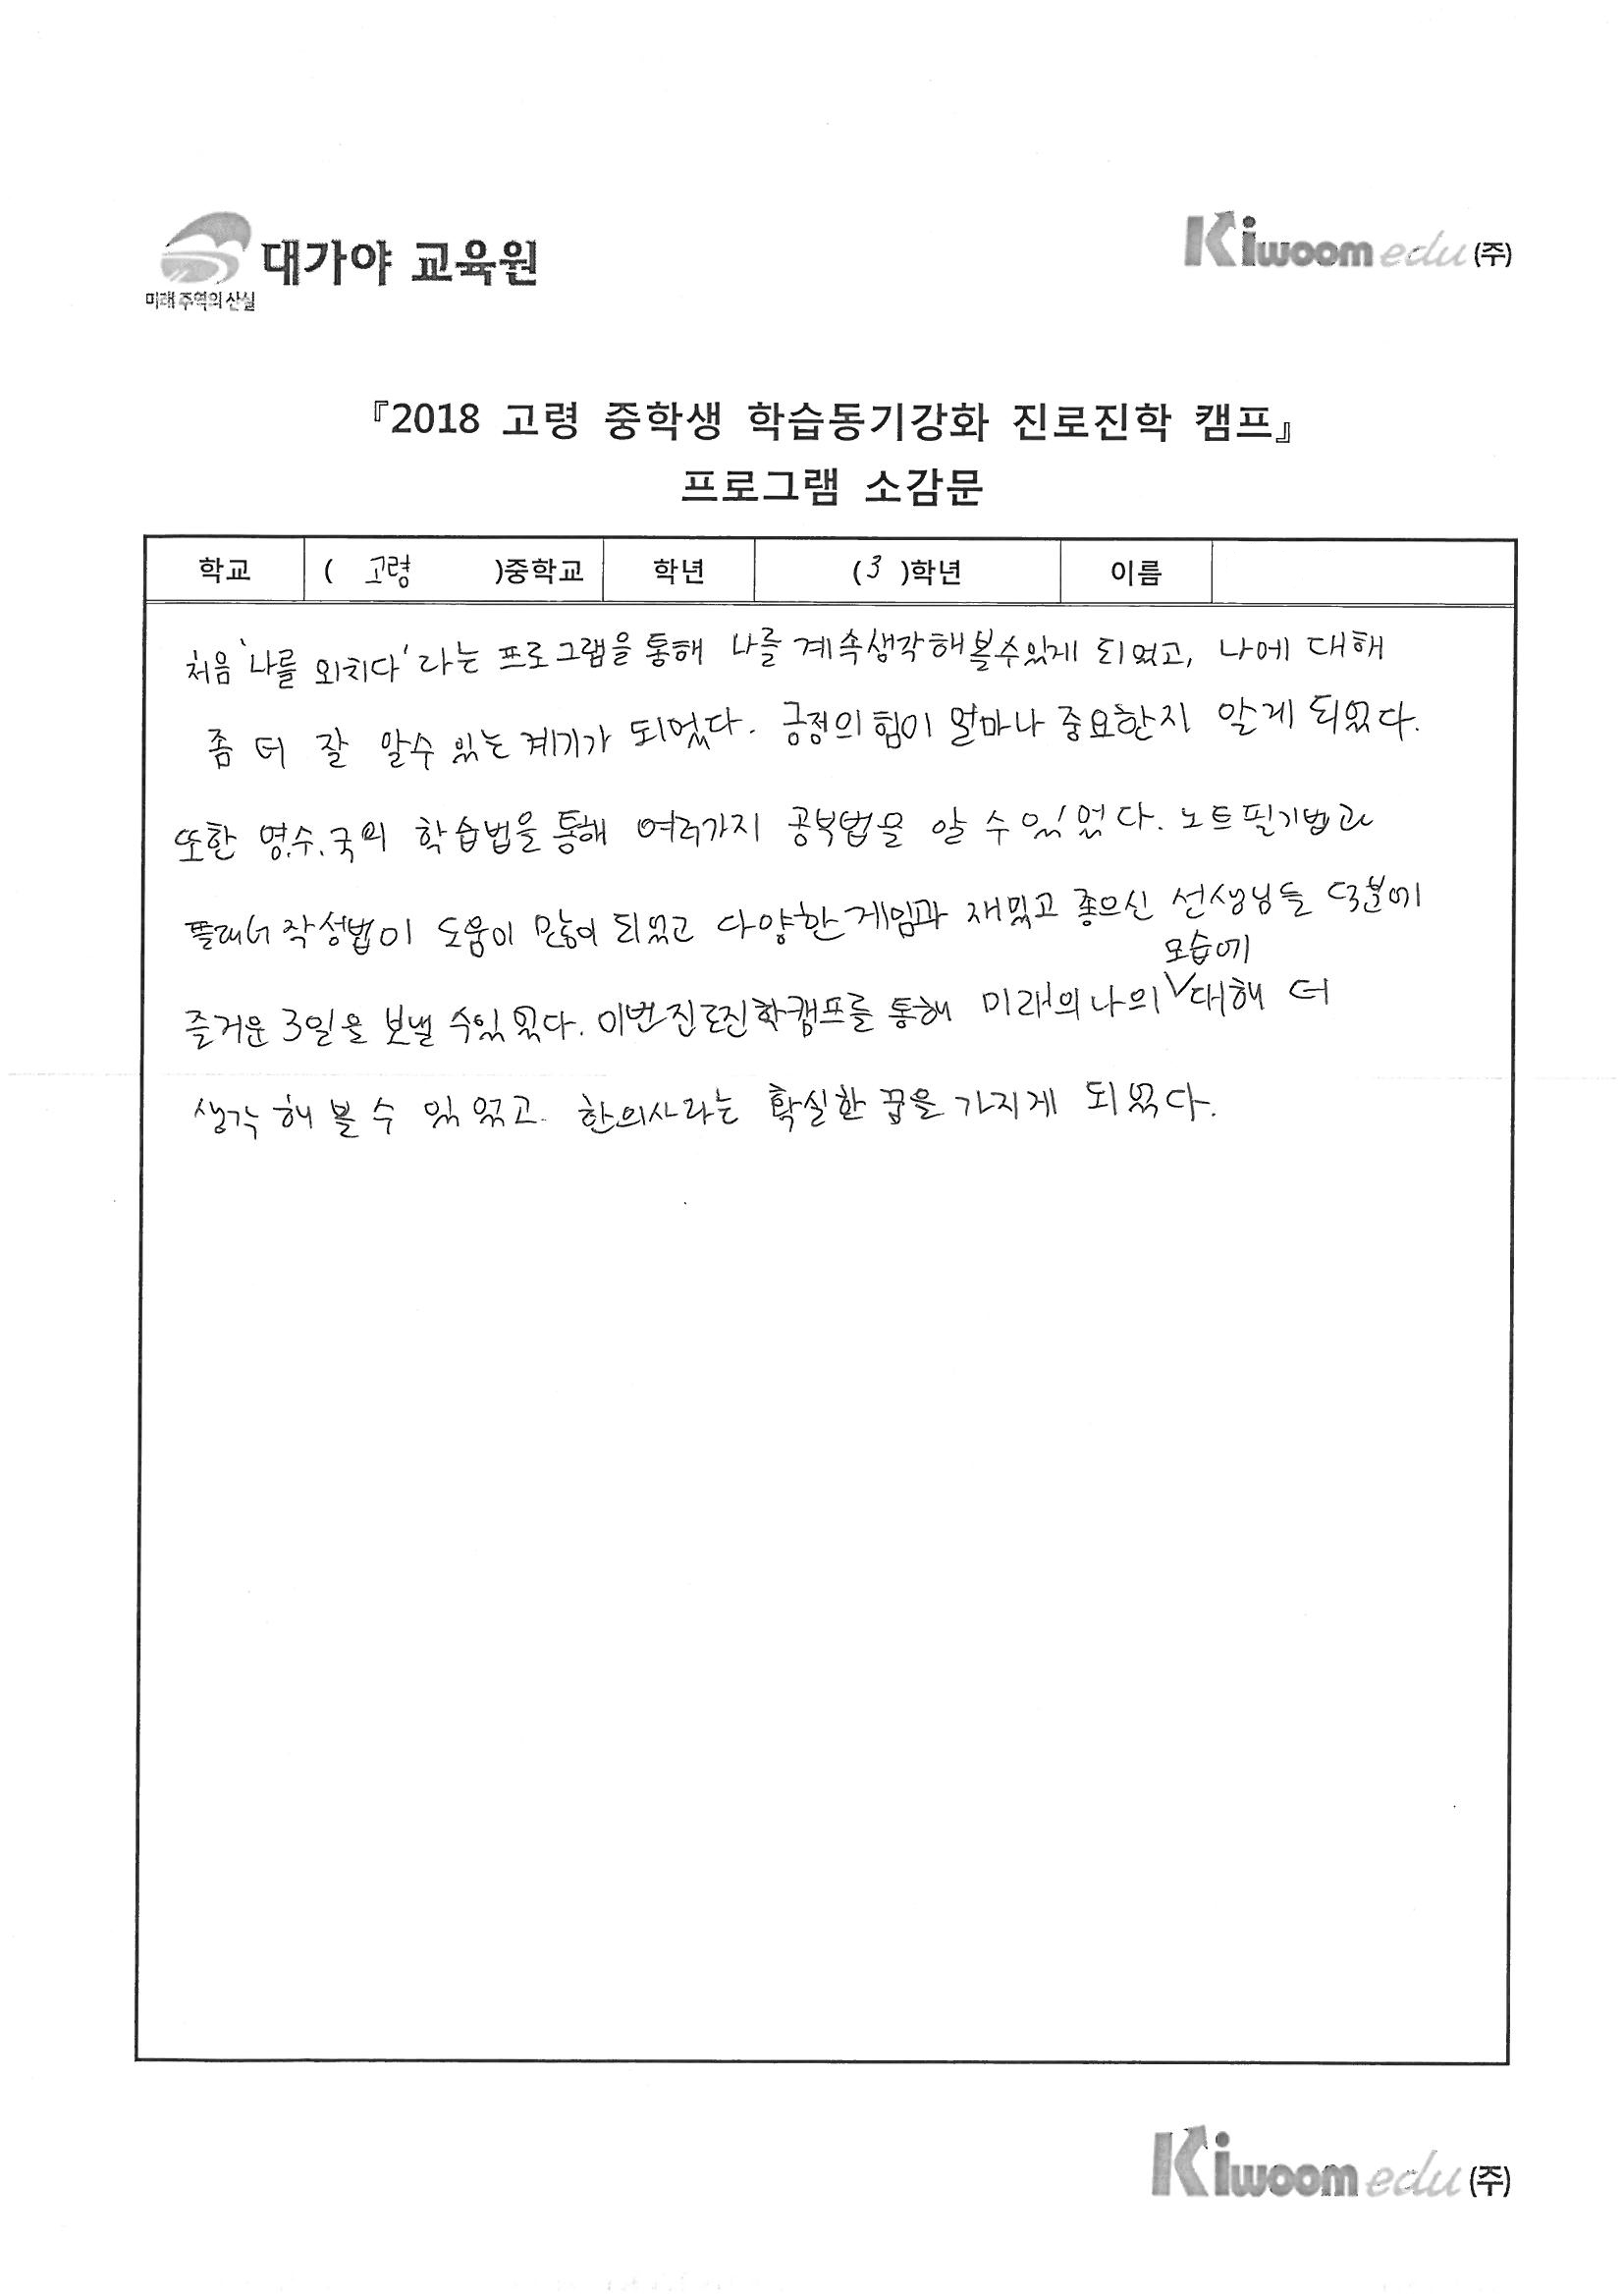 대가야 교육원
미래 주역의 산실
Kiwoom edu (주)
『2018 고령 중학생 학습동기강화 진로진학 캠프』
프로그램 소감문
학교 ( 고령 )중학교 학년 (3 )학년 이름
처음 '나를 외치다' 라는 프로그램을 통해 나를 계속생각해볼수있게 되었고, 나에 대해
좀 더 잘 알수 있는 계기가 되었다. 긍정의 힘이 얼마나 중요한지 알게 되었다.
또한 영.수.국의 학습법을 통해 여러가지 공부법을 알 수 있었다. 노트필기법과
플래너 작성법이 도움이 많이 되었고 다양한 게임과 재밌고 좋으신 선생님들 덕분에
모습에
즐거운 3일을 보낼 수있었다. 이번진로진학캠프를 통해 미래의 나의 ∨ 대해 더
생각 해 볼 수 있었고. 한의사라는 확실한 꿈을 가지게 되었다.
Kiwoom edu (주)